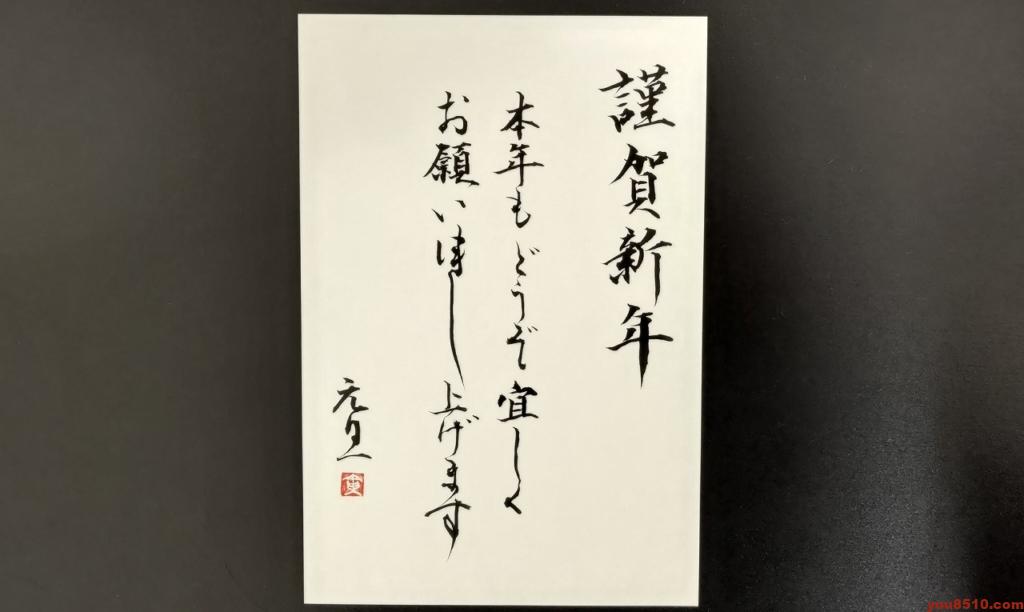 謹賀新年
本年もどうぞ宜しく
お願い致し上げます
元旦
you8510.com